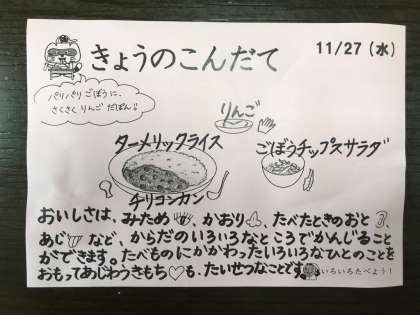 きょうのこんだて
11/27（水）
パリパリごぼうに、
さくさくりんごだぽん♪
りんご
ターメリックライス
ごぼうチップスサラダ
チリコンカン
おいしさは、みため、かおり、たべたときのおと、
あじなど、からだのいろいろなところでかんじること
ができます。たべものにかかわったいろいろなひとのことを
おもってあじわうきもち♡も、たいせつなことです。
いろいろたべよう！